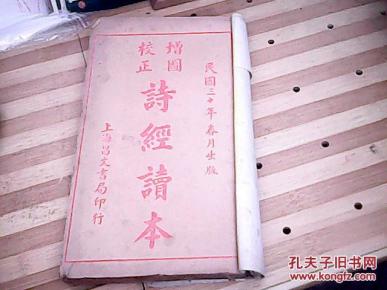 民國三十年春月出版
增圖
校正
詩經讀本
上海昌文書局印行
孔夫子旧书网